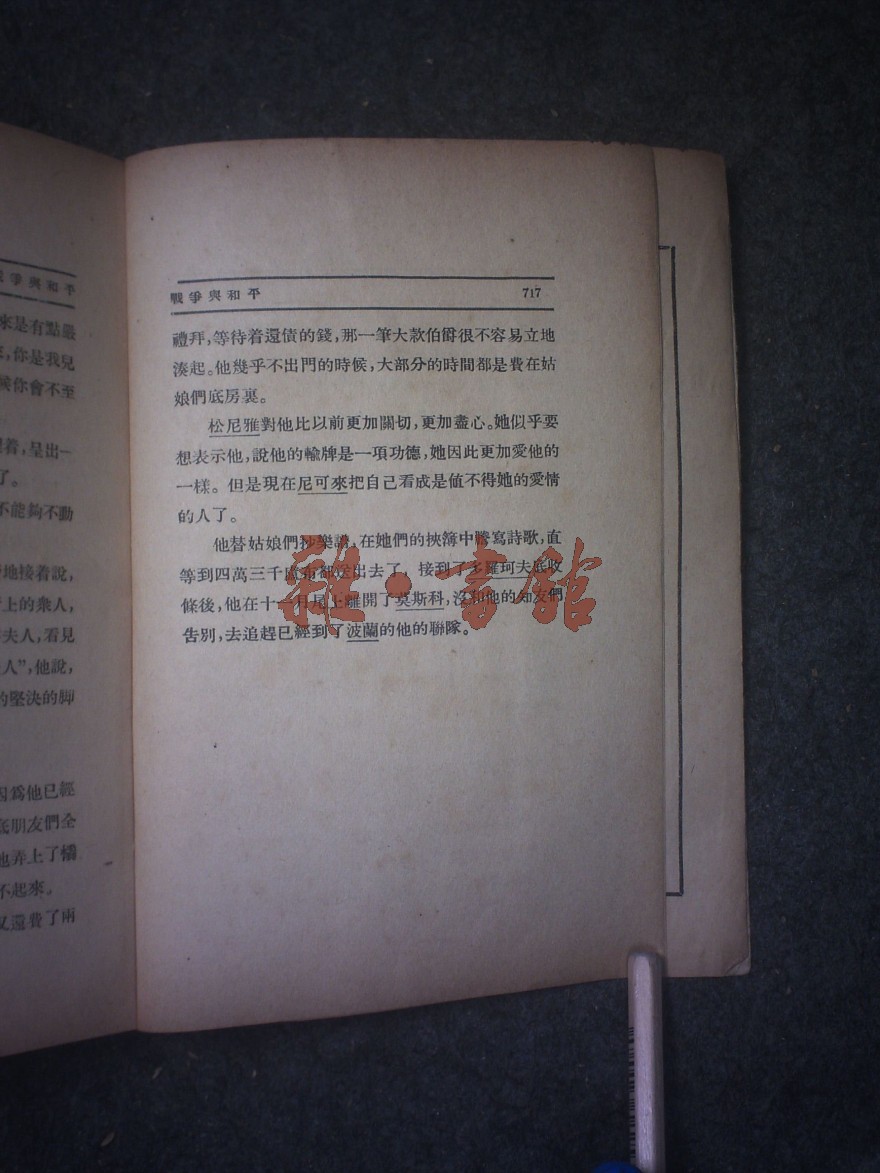 戰爭與和平
來是有點嚴
，你是我兒
候你會不至
着，呈出一
了。
不能夠不動
地接着說，
上的衆人，
夫人，看見
人”，他說，
的堅決的脚
因爲他已經
底朋友們全
他弄上了橘
不起來。
又還費了兩
戰爭與和平 717
禮拜，等待着還債的錢，那一筆大款伯爵很不容易立地
湊起。他幾乎不出門的時候，大部分的時間都是費在姑
娘們底房裏。
松尼雅對他比以前更加關切，更加盡心。她似乎要
想表示他，說他的輸牌是一項功德，她因此更加愛他的
一樣。但是現在尼可來把自己看成是値不得她的愛情
的人了。
他替姑娘們抄樂譜，在她們的挾簿中謄寫詩歌，直
等到四萬三千盧布都送出去了，接到了多羅珂夫底收
條後，他在十一月尾上離開了莫斯科，沒和他的知友們
告別，去追趕已經到了波蘭的他的聯隊。
雜·書館